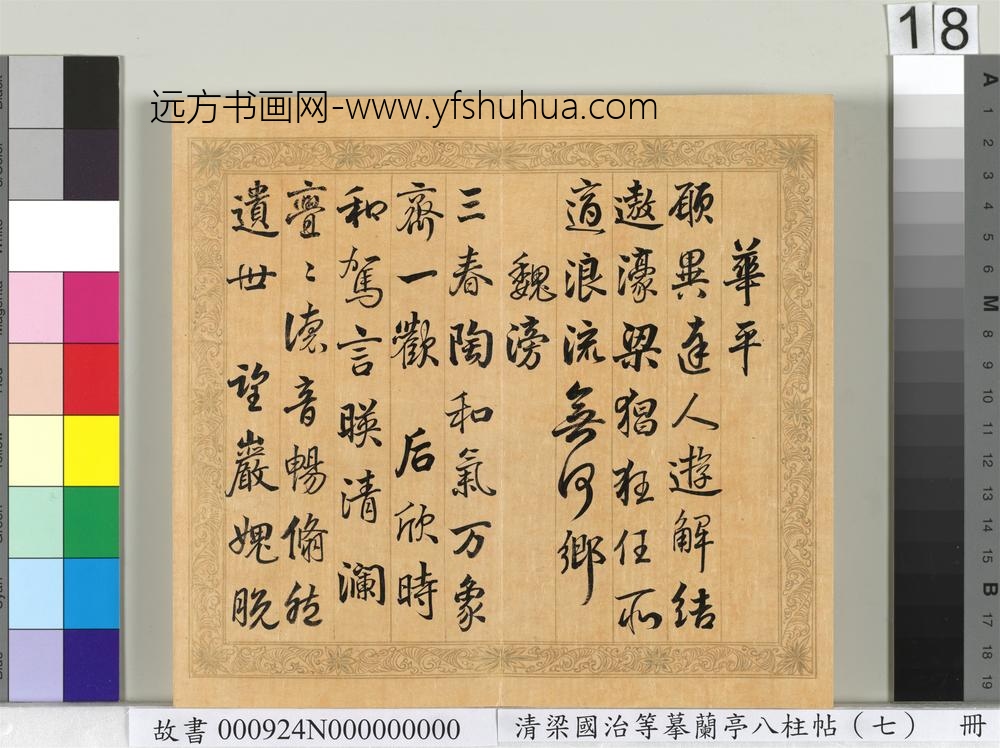 18
远方书画网-www.yfshuhua.com
華平
願異達人遊解結
遨濠梁猖狂任所
適浪流無何鄉
魏滂
三春陶和氣万象
齊一歡 后欣時
和駕言暎清瀾
亹〻德音暢脩然
遺世 望巖愧脫
故書 000924N000000000
清梁國治等摹蘭亭八柱帖（七） 冊
3/Color
White
Magenta
Red
Yellow
Green
Cyan
Blue
A 1 2 3 4 5 M 8 9 10 11 12 13 14 15 B 17 18 19